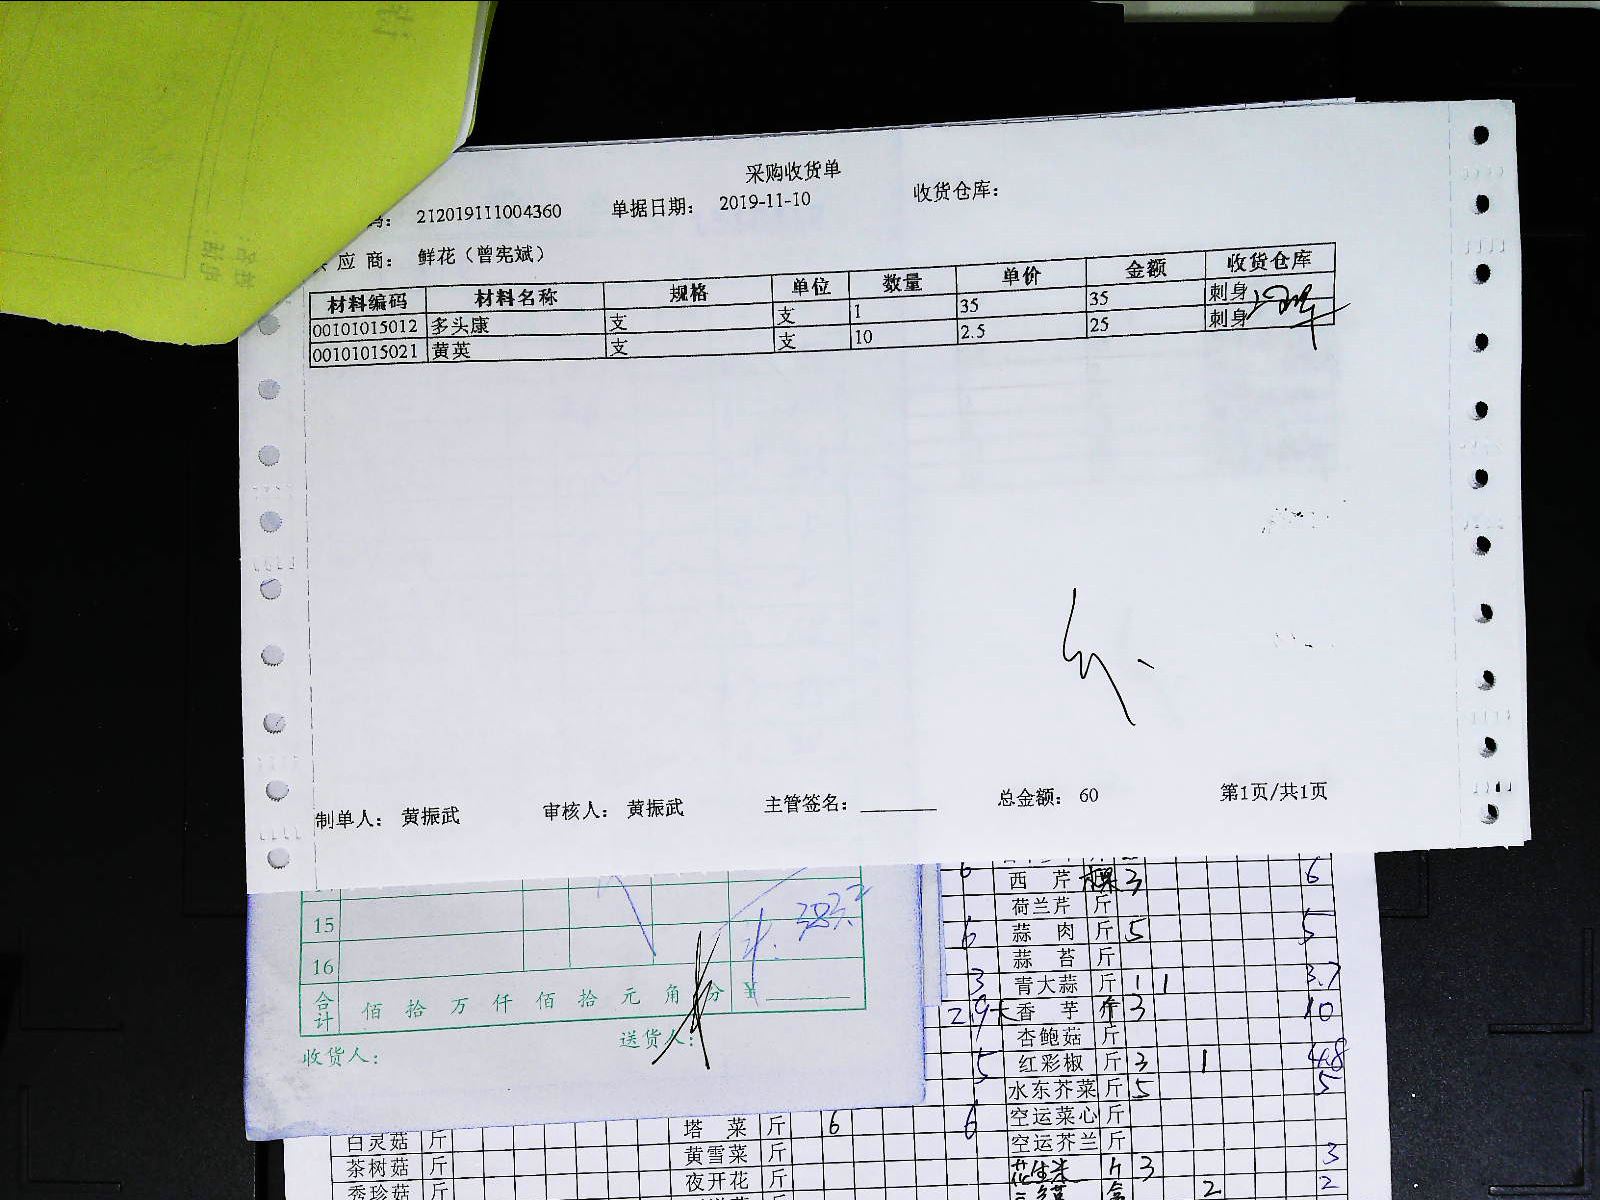 采购收货单
码： 212019111004360 单据日期： 2019-11-10 收货仓库：
应 商： 鲜花（曾宪斌）
材料编码 材料名称 规格 单位 数量 单价 金额 收货仓库
00101015012 多头康 支 支 1 35 35 刺身
00101015021 黄英 支 支 10 2.5 25 刺身
制单人： 黄振武 审核人： 黄振武 主管签名： 总金额： 60 第1页/共1页
15
16
合计 佰 拾 万 仟 佰 拾 元 角 分 ¥
收货人： 送货人：
6 西 芹 棵 3 6
荷兰芹 斤
6 蒜 肉 斤 5 5
蒜 苔 斤
3 青大蒜 斤 1 1 3.7
香 芋 3 10
杏鲍菇 斤
5 红彩椒 斤 3 1 4.8
水东芥菜 斤 5 5
塔 菜 斤 6 6 空运菜心 斤
白灵菇 斤 黄雪菜 斤 空运芥兰 斤
茶树菇 斤 夜开花 斤 花生米 3 3
秀珍菇 斤 2 2